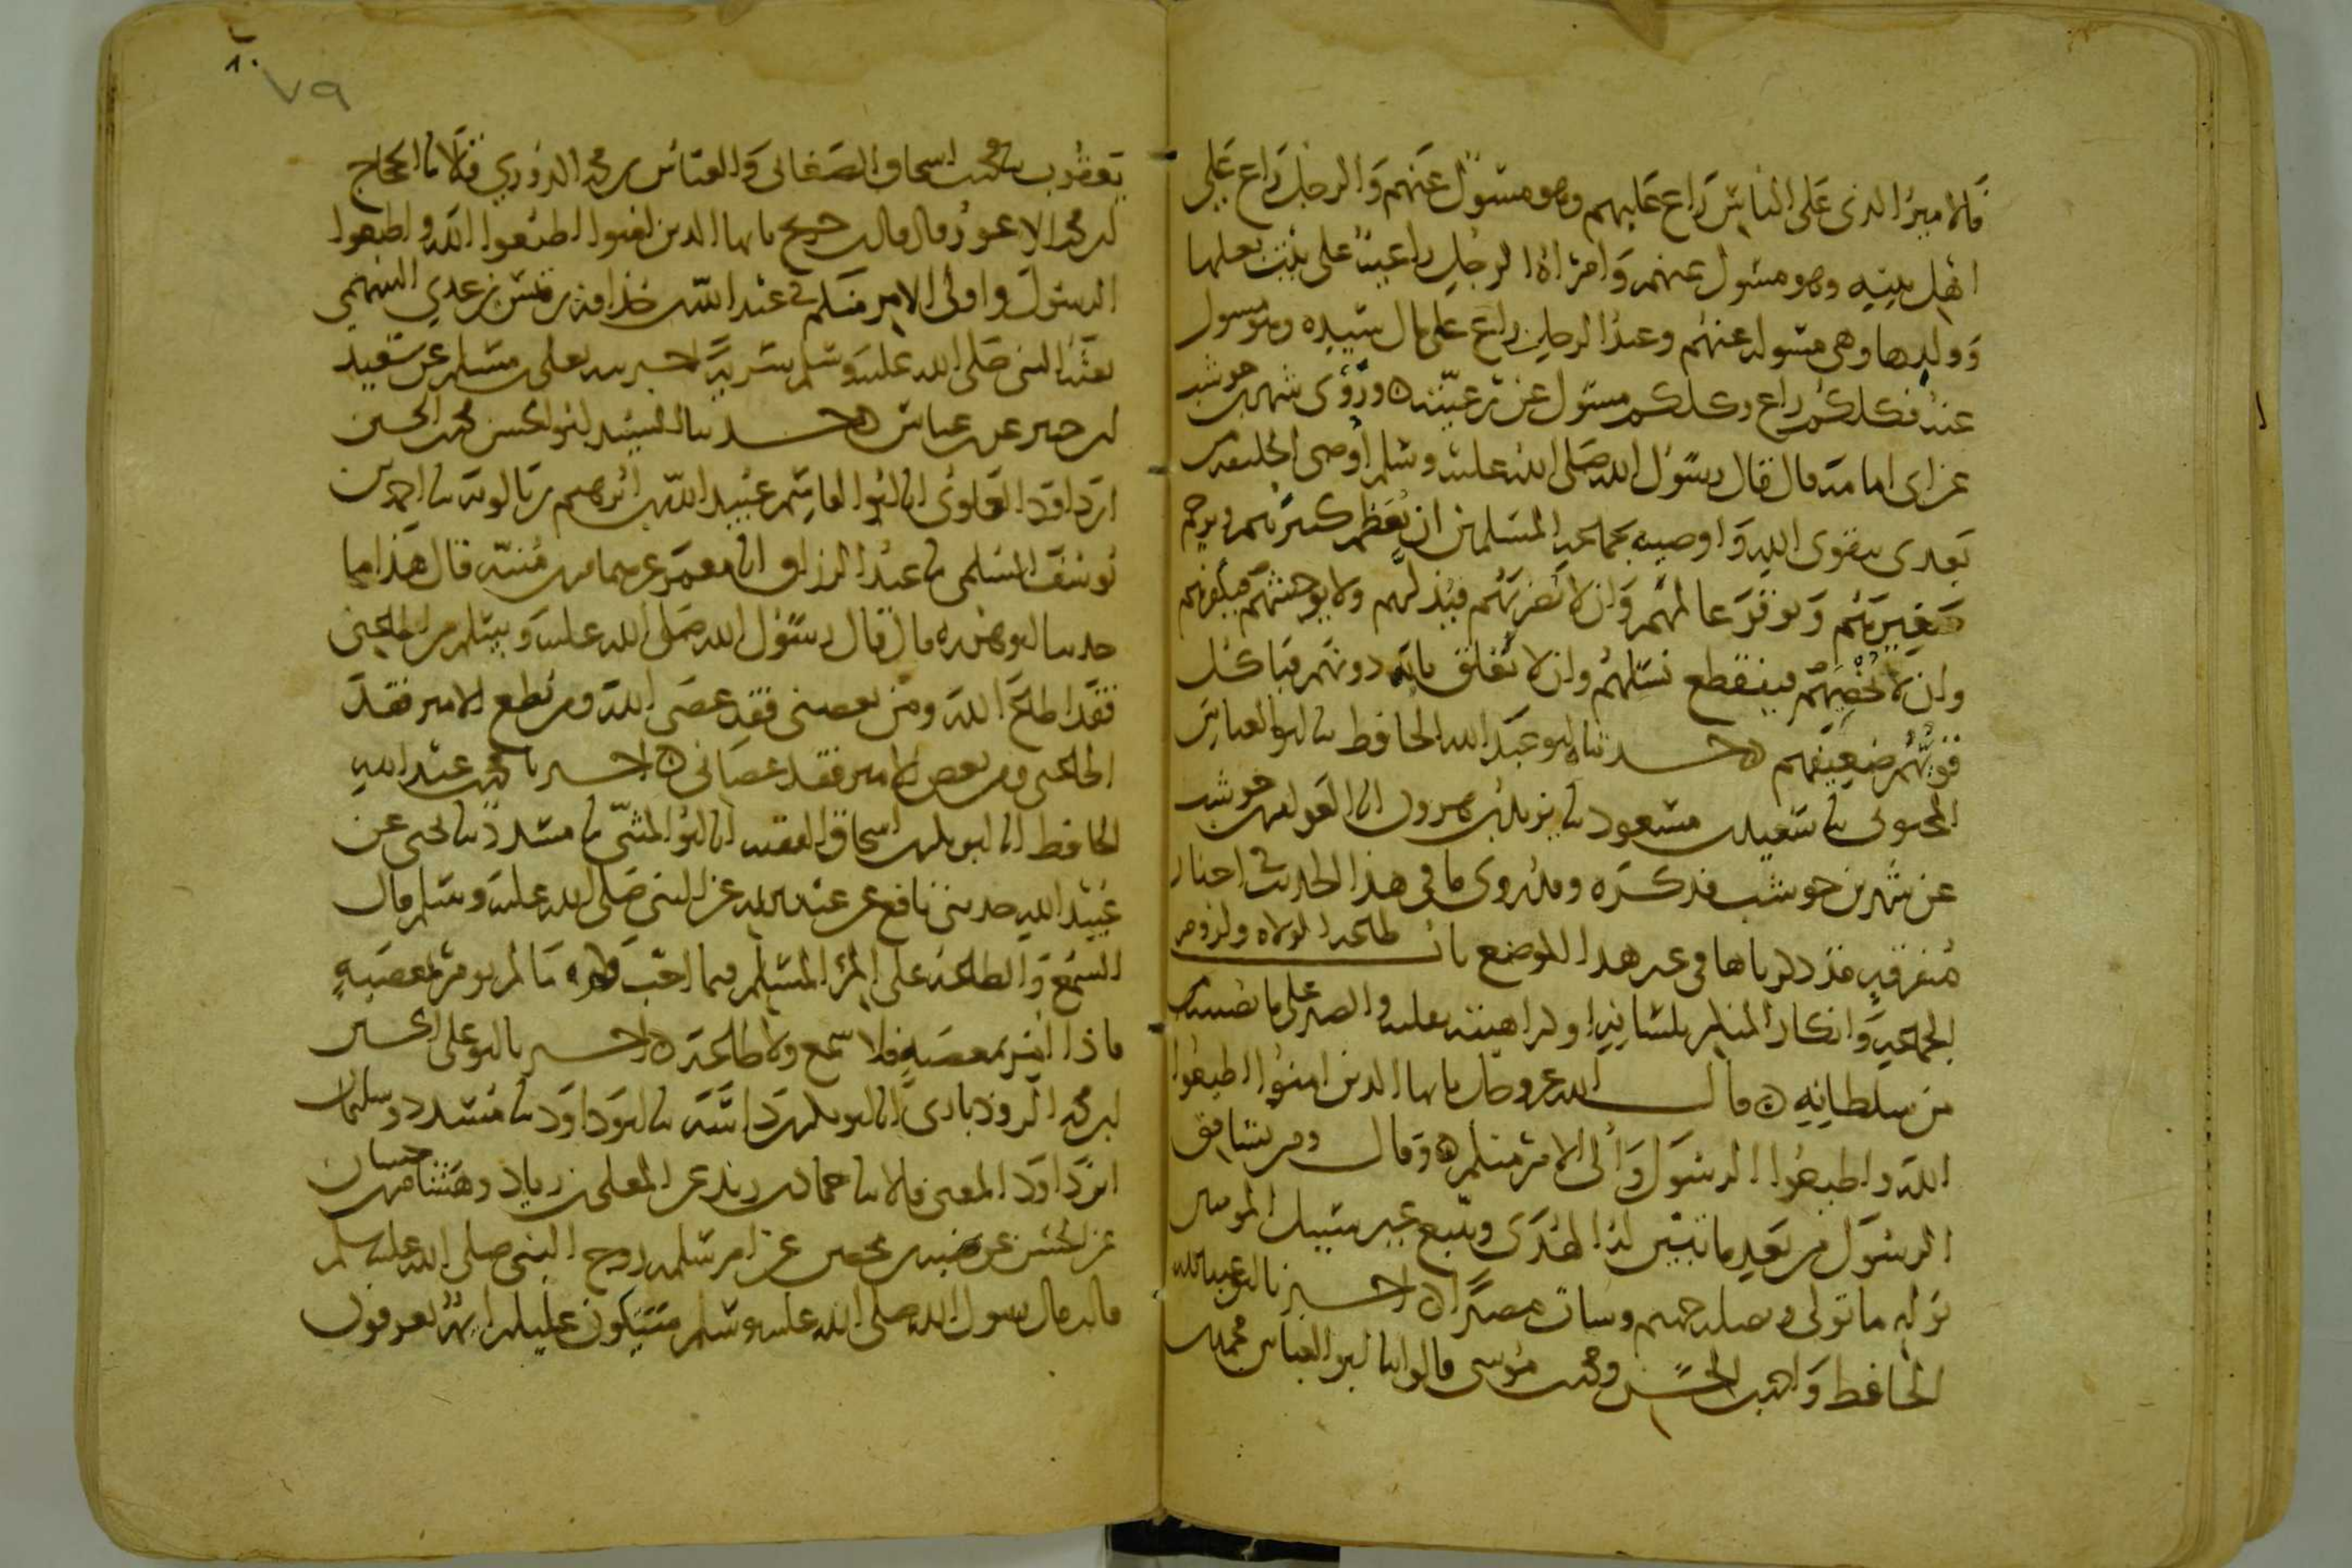 فالامير الذي على الناس راع عليهم وهو مسئول عنهم والرجل راع على
اهل بيته وهو مسئول عنهم وامراة الرجل راعية على بيت بعلها
وولدها وهي مسئولة عنهم وعبد الرجل راع على مال سيده وهو مسئول
عنه فكلكم راع وكلكم مسئول عن رعيته وروى شهر بن حوشب
عن ابي امامة قال قال رسول الله صلى الله عليه وسلم أوصي الخليفة من
بعدي بتقوى الله واوصيه بجماعة المسلمين ان يعظم كبيرهم ويرحم
صغيرهم ويوقر عالمهم وان لا يضربهم فيذلهم ولا يوحشهم فيكفرهم
وان لا يخصيهم فينقطع نسلهم وان لا يغلق بابه دونهم فياكل
قويهم ضعيفهم حدثناه ابو عبد الله الحافظ نا ابو العباس
المحبوبي نا سعيد بن مسعود نا يزيد بن هرون انا العوام بن حوشب
عن شهر بن حوشب فذكره وقد روي ما في هذا الحديث في اخبار
متفرقة قد ذكرناها في غير هذا الموضع باب طاعة الولاة ولزوم
الجماعة وانكار المنكر بلسانه او كراهيته بقلبه والصبر على ما يصيبه
من سلطانه قال الله عز وجل يا ايها الذين امنوا اطيعوا
الله واطيعوا الرسول وأولي الامر منكم وقال ومن يشاقق
الرسول من بعد ما تبين له الهدى ويتبع غير سبيل المومنين
نوله ما تولى ونصله جهنم وسات مصيرا اخبرنا ابو عبد الله
الحافظ واحمد بن الحسن ومحمد بن موسى قالوا نا ابو العباس محمد بن
٨٠
٧٩
يعقوب نا محمد بن اسحاق الصغاني والعباس بن محمد الدوري قالا نا الحجاج
بن محمد الاعور قال قال ابن جريج يا ايها الذين امنوا اطيعوا الله واطيعوا
الرسول واولي الامر منكم في عبد الله بن حذافة بن قيس بن عدي السهمي
بعثه النبي صلى الله عليه وسلم في سرية اخبرنيه يعلى بن مسلم عن سعيد
بن جبير عن بن عباس حدثنا السيد ابو الحسن محمد بن الحسين
بن داود العلوي انا ابو القاسم عبيد الله بن ابرهيم بن بالويه نا احمد بن
يوسف السلمي نا عبد الرزاق انا معمر عن همام بن منبه قال هذا ما
حدثنا ابو هريرة قال قال رسول الله صلى الله عليه وسلم من اطاعني
فقد اطاع الله ومن يعصني فقد عصى الله ومن يطع الامير فقد
اطاعني ومن يعص الامير فقد عصاني اخبرنا محمد بن عبد الله
الحافظ انا ابو بكر بن اسحاق الفقيه انا ابو المثنى نا مسدد نا يحيى عن
عبيد الله حدثني نافع عن عبد الله عن النبي صلى الله عليه وسلم قال
السمع والطاعة على المرء المسلم فيما احب وكره ما لم يومر بمعصية
فاذا أمر بمعصية فلا سمع ولا طاعة اخبرنا ابو علي الحسين
بن محمد الروذباري انا ابو بكر بن داسة نا ابو داود نا مسدد وسليمان
بن داود المعنى قالا نا حماد بن زيد عن المعلى بن زياد وهشام بن حسان
عن الحسن عن ضبة بن محصن عن ام سلمة زوج النبي صلى الله عليه وسلم
قالت قال رسول الله صلى الله عليه وسلم ستكون عليكم ايمة تعرفون